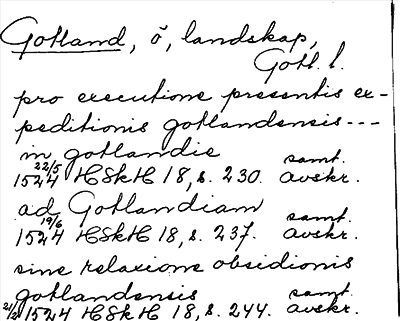 Gotland, ö, landskap,
Gotl. l.
pro executione presentis ex-
peditionis gotlandensis ---
in gotlandie
22/5 1524 HSkH 18, s. 230. samt. avskr.
ad Gotlandiam
19/6 1524 HSkH 18, s. 237. samt. avskr.
sine relaxione obsidionis
gotlandensis
2/2 1524 HSkH 18, s. 244. samt. avskr.